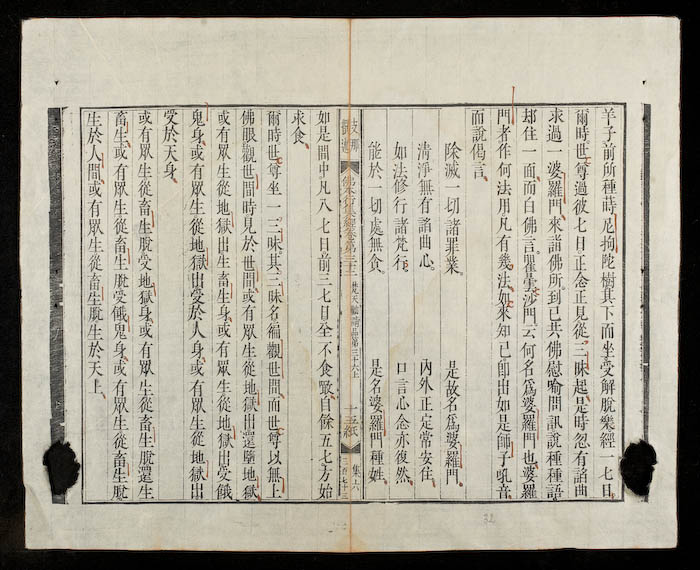 羊子前所種蒔尼拘陀樹其下而坐受解脫樂經一七日
爾時世尊過彼七日正念正見從三昧起是時忽有諂曲
求過一婆羅門來詣佛所到已共佛慰喻問訊說種種語
却住一面而白佛言瞿曇沙門云何名爲婆羅門也婆羅
門者作何法用凡有幾法如來知已卽出如是師子吼音
而說偈言
除滅一切諸罪業 是故名爲婆羅門
清淨無有諂曲心 內外正定常安住
如法修行諸梵行 口言心念亦復然
能於一切處無貪 是名婆羅門種姓
支那撰述 佛本行集經卷第三十三 梵天勸請品第三十六上 十五紙 集六
如是間中凡八七日前三七日全不食噉自餘五七方始
求食
爾時世尊坐一三昧其三昧名徧觀世間而世尊以無上
佛眼觀世間時見於世間或有眾生從地獄出還墮地獄
或有眾生從地獄出生畜生身或有眾生從地獄出受餓
鬼身或有眾生從地獄出受於人身或有眾生從地獄出
受於天身
或有眾生從畜生脫受地獄身或有眾生從畜生脫還生
畜生或有眾生從畜生脫受餓鬼身或有眾生從畜生脫
生於人間或有眾生從畜生脫生於天上
32